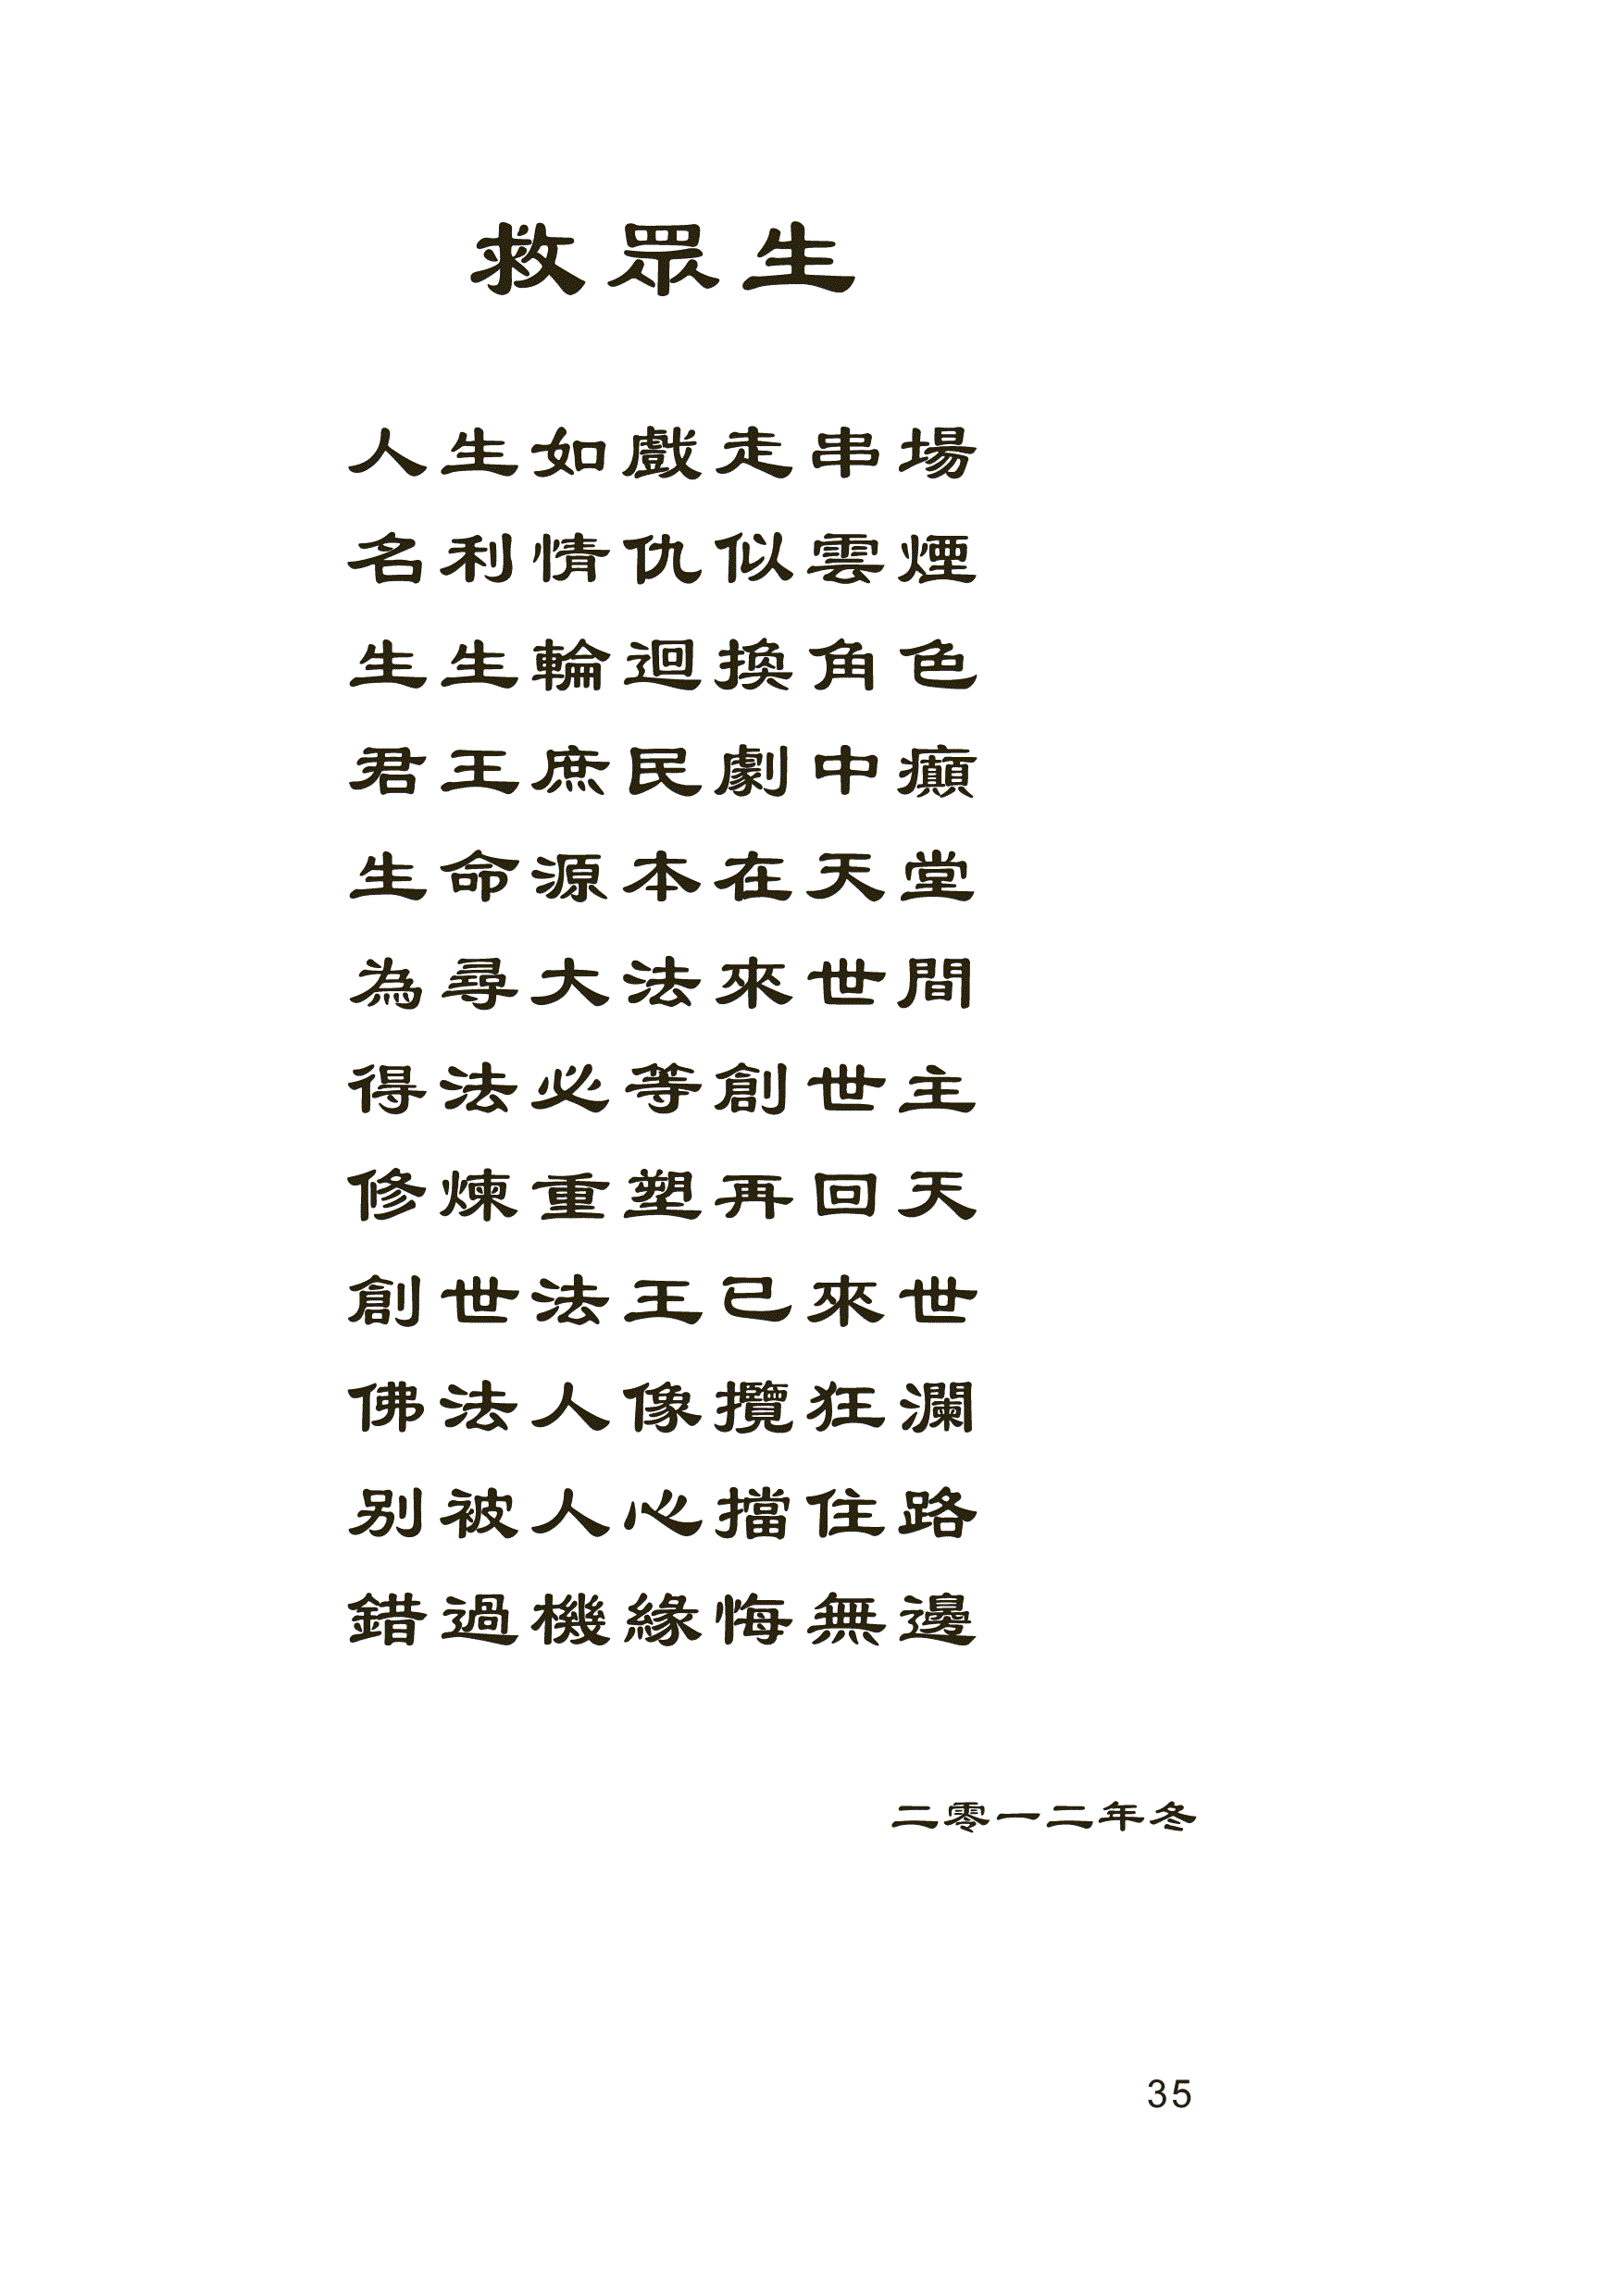 救眾生
人生如戲走串場
名利情仇似雲煙
生生輪迴換角色
君王庶民劇中癲
生命源本在天堂
為尋大法來世間
得法必等創世主
修煉重塑再回天
創世法王已來世
佛法人像攬狂瀾
別被人心擋住路
錯過機緣悔無邊
二零一二年冬
35